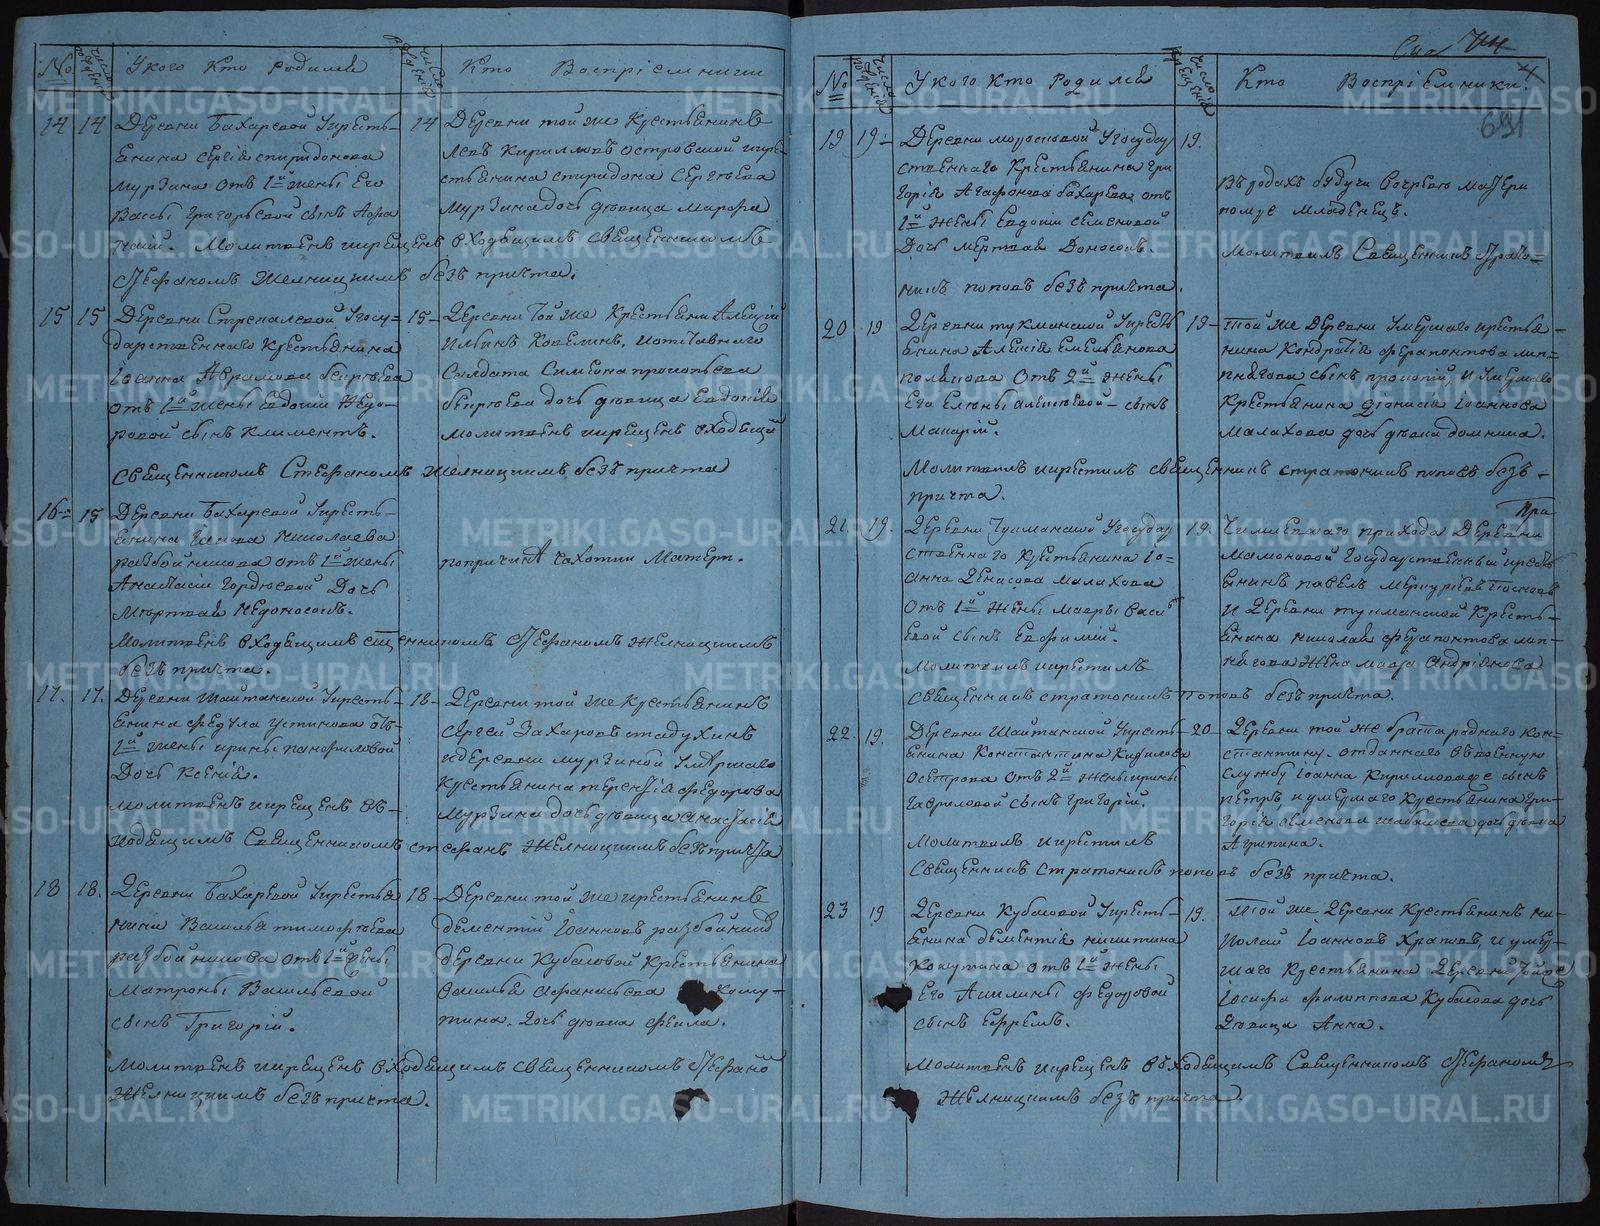 № Число рожденія У кого кто родился Число крещенія Кто Воспріемники
14 14 Деревни Бахаревой у кресть-
янина Сергія Спиридонова
Мурзина отъ 1й жены его
Вассы Григорьевой сынъ Афа
насій. Молитвенъ и крещенъ входящимъ священникомъ
Стефаномъ Желницкимъ безъ причта.
14 Деревни той же крестьянинъ
Левъ Кирилловъ Островской и кре-
стьянина Спиридона Сергѣева
Мурзина дочь дѣвица Марфа
15 15 Деревни Стрекалевой у госу-
дарственнаго крестьянина
Іоанна Аврамова
отъ 1й жены Евдокіи Федо-
ровой сынъ Климентъ.
Священникомъ Стефаномъ Желницкимъ безъ причта
15 Деревни той же крестьянинъ Алексій
Ильинъ и отставнаго
солдата Симеона Прокопьева
дочь дѣвица Евдокія
молитвенъ и крещенъ входящи
16 15 Деревни Бахаревой у кресть-
янина Іакова Николаева
Разбойникова отъ 1й жены
Анастасіи Гордѣевой дочь
мертвая недоносокъ.
Молитвенъ входящимъ священникомъ Стефаномъ Желницкимъ
безъ причта.
по причинѣ чахотки матери.
17. 17. Деревни Шайтанской у кресть-
янина Федула Устинова отъ
1й жены Ирины Панфиловой
дочь Ксенія.
молитвенъ и крещенъ вх-
одящимъ священникомъ Стефаномъ Желницкимъ безъ причта
18 Деревни той же крестьянинъ
Сергей Захаровъ Стадухинъ
и деревни Мурзиной умершаго
крестьянина Терентія Федорова
Мурзина дочь дѣвица Анастасія
18 18. Деревни Бахаревой у крестья
нина Василья Тимофѣева
Разбойникова отъ 1й жены
Матроны Васильевой
сынъ Григорій.
молитвенъ и крещенъ входящимъ священникомъ Стефано
Желницкимъ безъ причта.
18 Деревни той же крестьянинъ
Дементій Іоанновъ Разбойник
деревни Кубасовой крестьянина
Василья Афанасьева Кокшу-
тина. дочь дѣвка Фекла.
№ Число рожденія У кого кто родился Число крещенія Кто Воспріемники.
691
19 19 Деревни у государ
ственнаго крестьянина Гри
горія Агафонова Бахарева отъ
1й жены Евдокіи Семеновой
дочь мертвая доносокъ.
никъ Поповъ безъ причта.
19.
въ родахъ будучи
помре младенецъ.
молитвилъ священникъ Страто=
20 19 Деревни Тукманской у кресть
янина Алексія Емельянова
Полякова отъ 2й жены
его Елены Алексѣевой сынъ
Макарій.
Молитвилъ и крестилъ священникъ Стратоникъ Поповъ безъ
причта.
19 той же деревни умершаго крестья-
нина Кондратія Ферапонтова
сынъ Прокопій, и умершаго
крестьянина Діонисія Іоаннова
Малахова дочь дѣвка Домника.
21. 19. Деревни Тукманской у государ
ственнаго крестьянина Іо-
анна Денисова Малахова
отъ 1й жены Мавры Василь
евой сынъ Евфимій.
Молитвилъ и крестилъ
священникъ Стратоникъ Поповъ безъ причта.
19. прихода деревни
Мамоновой государственный кресть
янинъ Павелъ Меркурьевъ
и деревни Тукманской кресть-
янина Николая Ферапонтова
жена Мавра Андріанова
22. 19. Деревни Шайтанской у кресть-
янина Константина Кирилова
Осетрова отъ 2й жены Ирины
Гавриловой сынъ Григорій.
Молитвилъ и крестилъ
священникъ Стратоникъ Поповъ безъ причта.
20 Деревни той же брата роднаго Кон-
стантину отданнаго въ военную
службу Іоанна сынъ
Петръ, и умершаго крестьянина Гри-
горія дочь дѣвка
Агрипина.
23 19 Деревни Кубасовой у кресть-
янина Дементія Никитина
Кокшутина отъ 1й жены
его Акилины Федоровой
сынъ Ефремъ.
молитвенъ и крещенъ входящимъ священникомъ Стефаномъ
Желницкимъ безъ причта.
19. той же деревни крестьянинъ Ни-
колай Іоанновъ Храповъ, и умер-
шаго крестьянина деревни той же
Іосифа Филиппова Кубасова дочь
дѣвица Анна.
METRIKI.GASO-URAL.RU